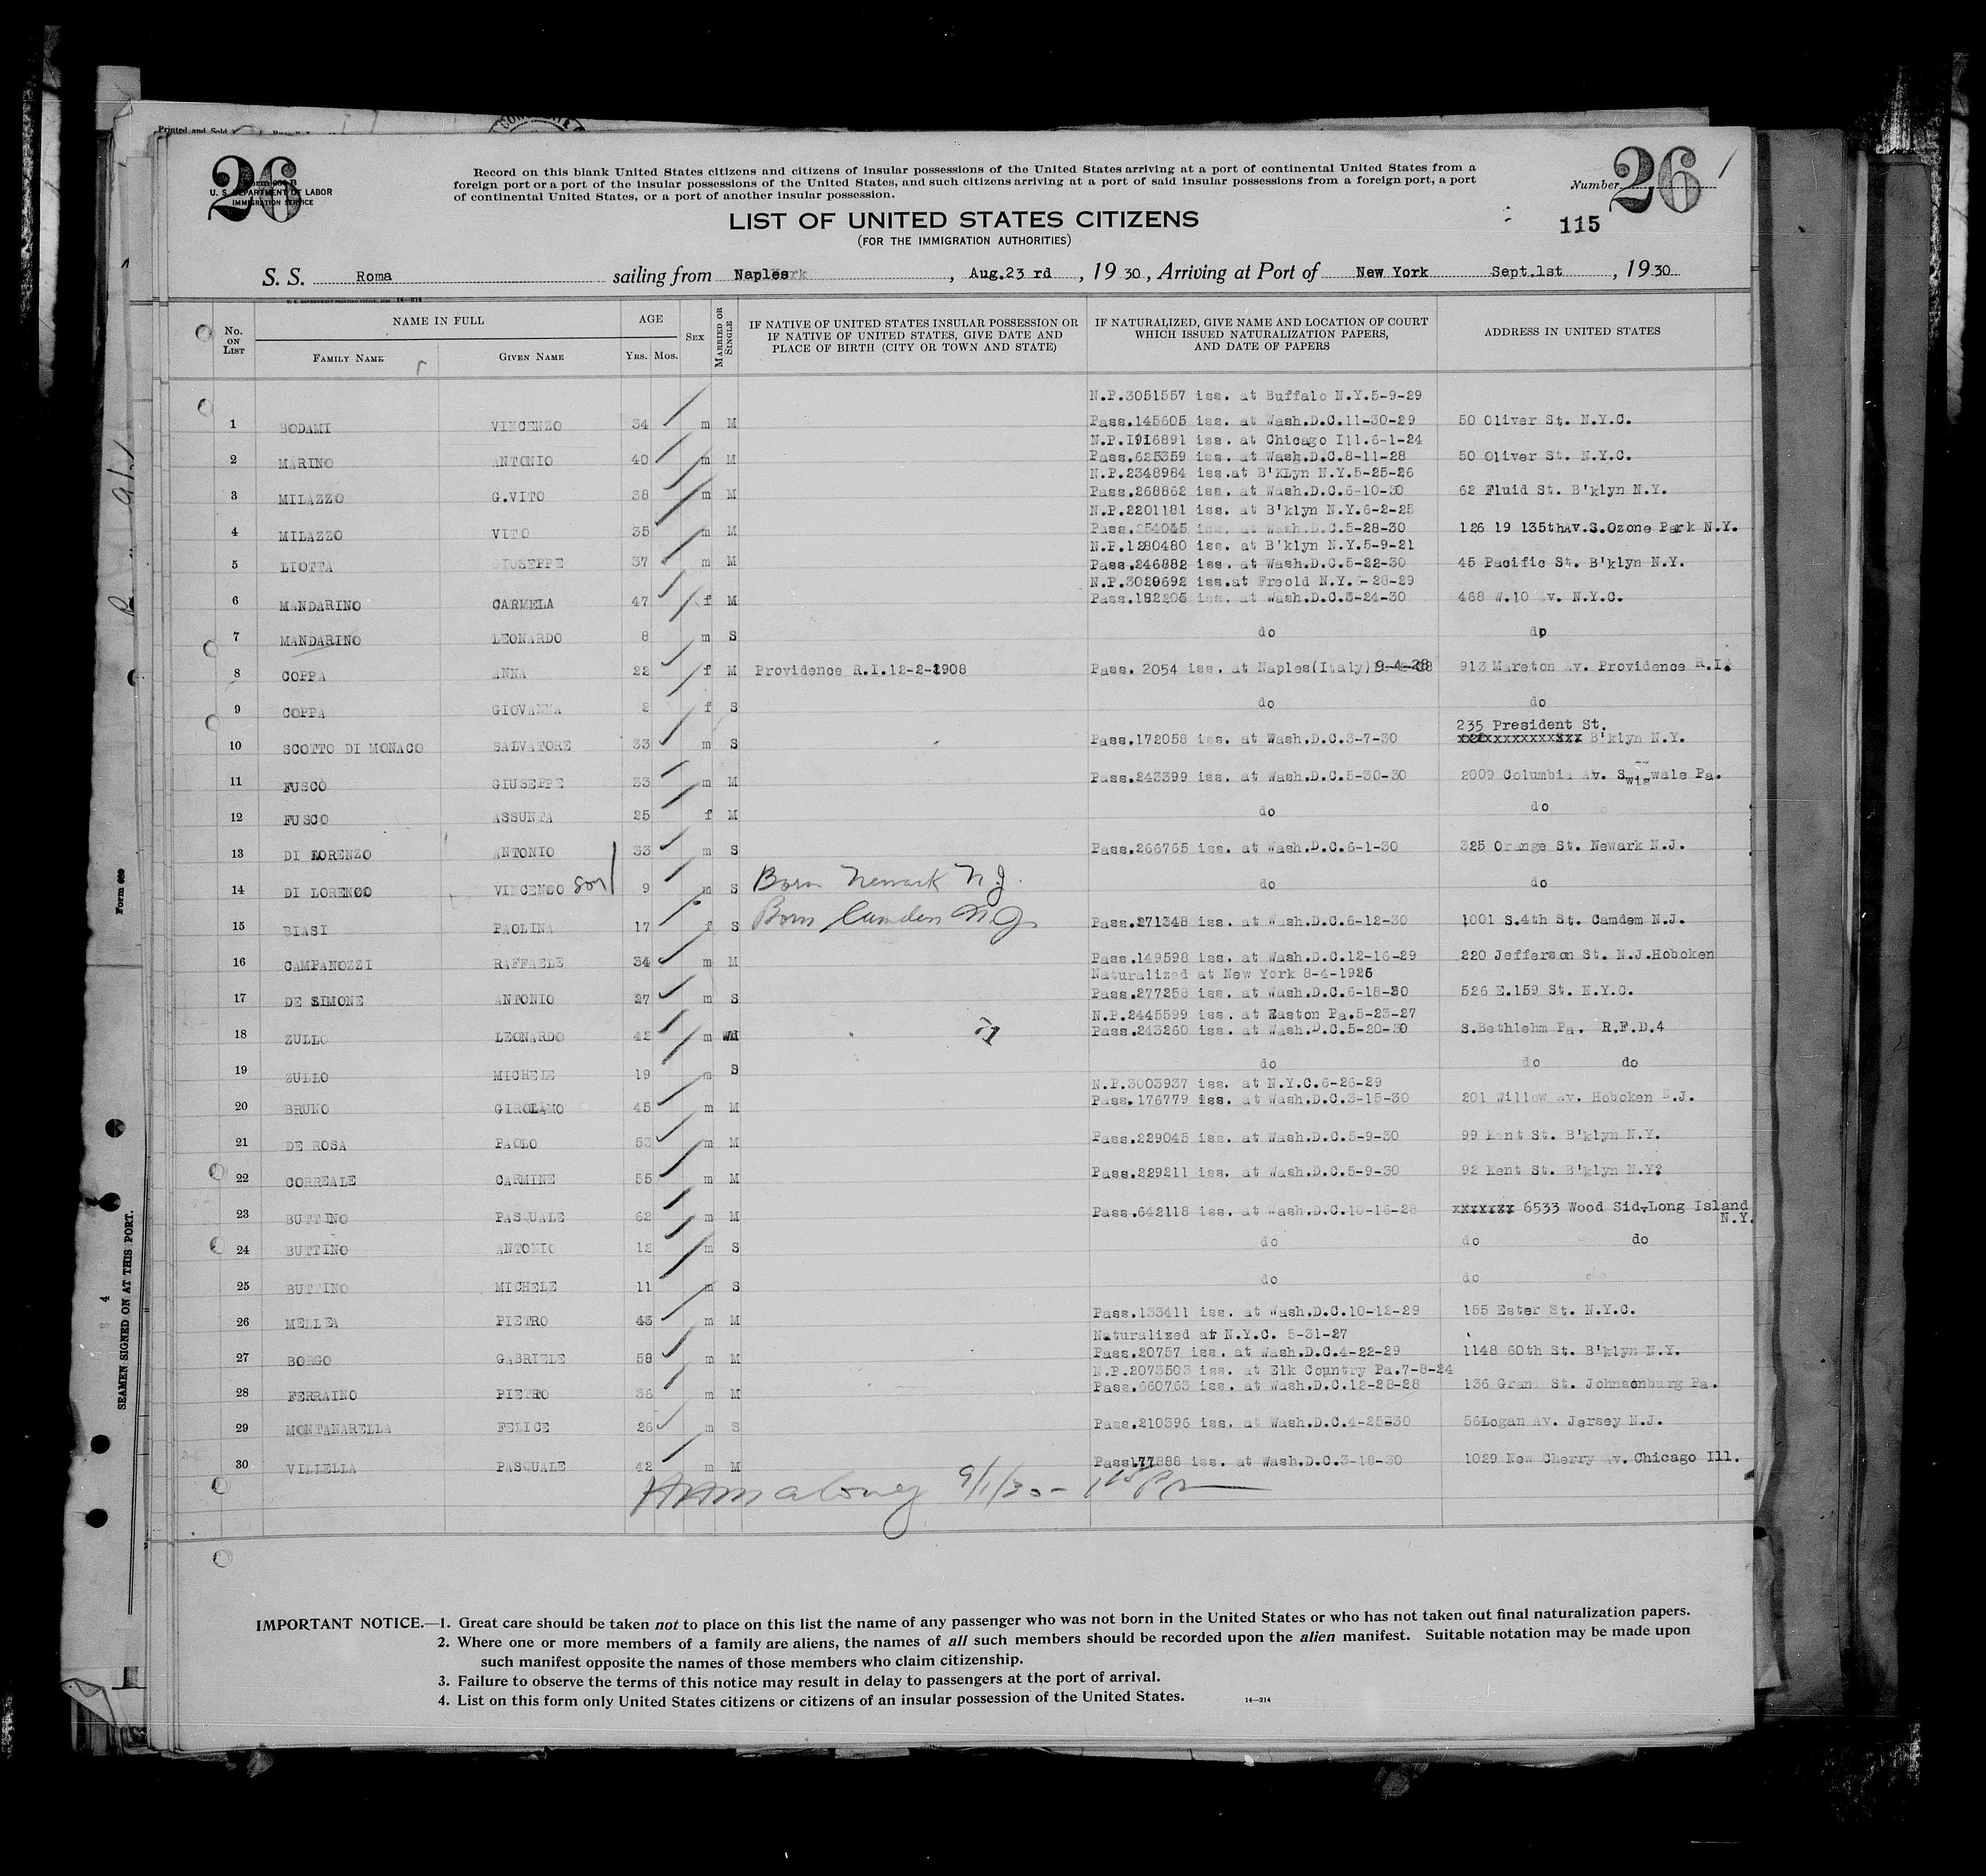 26
U. S. DEPARTMENT OF LABOR
IMMIGRATION SERVICE
Record on this blank United States citizens and citizens of insular possessions of the United States arriving at a port of continental United States from a
foreign port or a port of the insular possessions of the United States, and such citizens arriving at a port of said insular possessions from a foreign port, a port
of continental United States, or a port of another insular possession.
Number 26
115
LIST OF UNITED STATES CITIZENS
(FOR THE IMMIGRATION AUTHORITIES)
S. S. Roma sailing from Naples, Aug.23 rd, 1930, Arriving at Port of New York Sept.1st, 1930
No. ON LIST NAME IN FULL AGE SEX MARRIED OR SINGLE IF NATIVE OF UNITED STATES INSULAR POSSESSION OR IF NATIVE OF UNITED STATES, GIVE DATE AND PLACE OF BIRTH (CITY OR TOWN AND STATE) IF NATURALIZED, GIVE NAME AND LOCATION OF COURT WHICH ISSUED NATURALIZATION PAPERS, AND DATE OF PAPERS ADDRESS IN UNITED STATES
FAMILY NAME GIVEN NAME YRS. MOS.
N.P.3051557 iss. at Buffalo N.Y.5-9-29
1 BODAMI VINCENZO 34 m M Pass.145605 iss. at Wash.D.C.11-30-29 50 Oliver St. N.Y.C.
N.P.1916891 iss. at Chicago Ill.6-1-24
2 MARINO ANTONIO 40 m M Pass.625359 iss. at Wash.D.C.8-11-28 50 Oliver St. N.Y.C.
N.P.2348984 iss.at B'KLyn N.Y.5-25-26
3 MILAZZO G.VITO 38 m M Pass.268862 iss. at Wash.D.C.6-10-30 62 Fluid St. B'klyn N.Y.
N.P.2201181 iss. at B'klyn N.Y.6-2-25
4 MILAZZO VITO 35 m M Pass.254045 iss. at Wash.D.C.5-28-30 126 19 135thAv.S.Ozone Park N.Y.
N.P.1280480 iss. at B'klyn N.Y.5-9-21
5 LIOTTA GIUSEPPE 37 m M Pass.246882 iss. at Wash.D.C.5-22-30 45 Pacific St. B'klyn N.Y.
N.P.3029692 iss.at Freold N.Y.6-28-29
6 MANDARINO CARMELA 47 f M Pass.182205 iss. at Wash.D.C.3-24-30 468 W.10 Av. N.Y.C.
7 MANDARINO LEONARDO 8 m S do do
8 COPPA ANNA 22 f M Providence R.I.12-2-1908 Pass. 2054 iss. at Naples(Italy) 9-4-28 913 Mareton Av. Providence R.I.
9 COPPA GIOVANNA 2 f S do do
235 President St.
10 SCOTTO DI MONACO SALVATORE 33 m S Pass.172058 iss. at Wash.D.C.3-7-30 xxxxxxxxxxxxxxx B'klyn N.Y.
11 FUSCO GIUSEPPE 33 m M Pass.243399 iss. at Wash.D.C.5-30-30 2009 Columbia Av. Swiswale Pa.
12 FUSCO ASSUNTA 25 f M do do
13 DI LORENZO ANTONIO 33 m S Pass.266765 iss. at Wash.D.C.6-1-30 325 Orange St. Newark N.J.
14 DI LORENZO VINCENZO son 9 m S Born Newark N.J. do do
15 BIASI PAOLINA 17 f S Born Camden N.J. Pass.271348 iss. at Wash.D.C.6-12-30 1001 S.4th St. Camdem N.J.
16 CAMPANOZZI RAFFAELE 34 m M Pass.149598 iss. at Wash.D.C.12-16-29 220 Jefferson St. N.J.Hoboken
Naturalized at New York 8-4-1926
17 DE SIMONE ANTONIO 27 m S Pass.277258 iss. at Wash.D.C.6-18-30 526 E.159 St. N.Y.C.
N.P.2445599 iss. at Easton Pa.5-23-27
18 ZULLO LEONARDO 42 m Wd Pass.243260 iss. at Wash.D.C.5-20-30 S.Bethlehm Pa. R.F.D.4
19 ZULLO MICHELE 19 m S do do do
N.P.3003937 iss. at N.Y.C.6-26-29
20 BRUNO GIROLAMO 45 m M Pass.176779 iss. at Wash.D.C.3-15-30 201 Willow Av. Hoboken N.J.
21 DE ROSA PAOLO 53 m M Pass.229045 iss. at Wash.D.C.5-9-30 99 Kent St. B'klyn N.Y.
22 CORREALE CARMINE 55 m M Pass.229211 iss. at Wash.D.C.5-9-30 92 Kent St. B'klyn N.Y?
23 BUTTINO PASQUALE 62 m M Pass.642118 iss. at Wash.D.C.10-16-28 xxxxxxx 6533 Wood Sid-Long Island
N.Y.
24 BUTTINO ANTONIO 12 m S do do do
25 BUTTINO MICHELE 11 m S do do do
26 MELLEA PIETRO 43 m M Pass.133411 iss. at Wash.D.C.10-12-29 155 Ester St. N.Y.C.
Naturalized at N.Y.C. 5-31-27
27 BORGO GABRIELE 58 m M Pass.20757 iss. at Wash.D.C.4-22-29 1148 60th St. B'klyn N.Y.
N.P.2073503 iss. at Elk Country Pa.7-8-24
28 FERRAINO PIETRO 36 m M Pass.660763 iss. at Wash.D.C.12-28-28 136 Grant St. Johnsonburg Pa.
29 MONTANARELLA FELICE 26 m S Pass.210396 iss. at Wash.D.C.4-25-30 56Logan Av. Jersey N.J.
30 VILLELLA PASQUALE 42 m M Pass177888 iss. at Wash.D.C.3-18-30 1029 New Cherry Av. Chicago Ill.
9/1/30
IMPORTANT NOTICE.—1. Great care should be taken not to place on this list the name of any passenger who was not born in the United States or who has not taken out final naturalization papers.
2. Where one or more members of a family are aliens, the names of all such members should be recorded upon the alien manifest. Suitable notation may be made upon
such manifest opposite the names of those members who claim citizenship.
3. Failure to observe the terms of this notice may result in delay to passengers at the port of arrival.
4. List on this form only United States citizens or citizens of an insular possession of the United States.
14—214
Form 689
SEAMEN SIGNED ON AT THIS PORT.